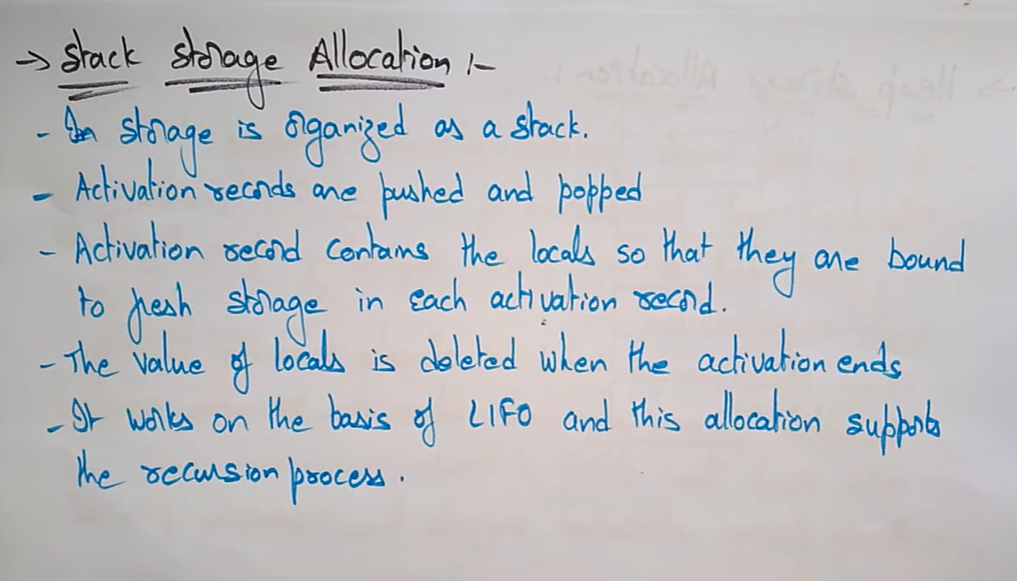 → Stack Storage Allocation :-
- In storage is organized as a stack.
- Activation records are pushed and popped
- Activation record contains the locals so that they are bound
to fresh storage in each activation record.
- The value of locals is deleted when the activation ends
- It works on the basis of LIFO and this allocation supports
the recursion process.